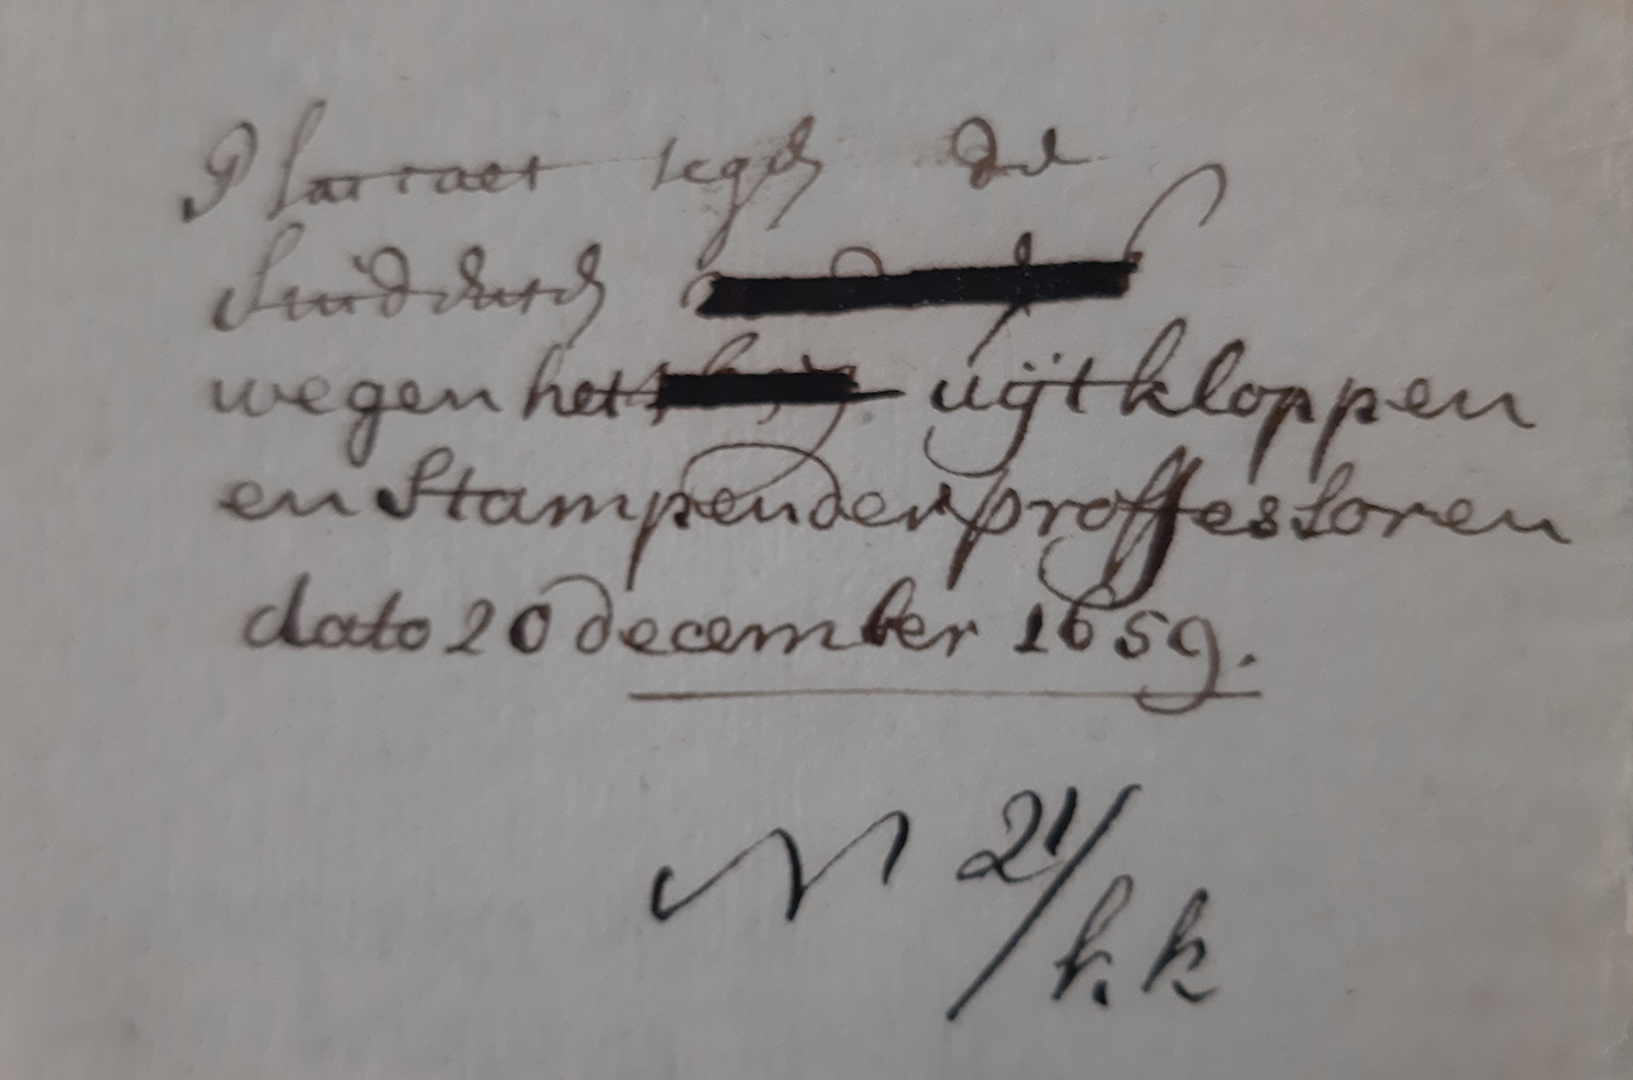 Placcaet tegen de
Studenten
wegen het uijtkloppen
en Stampen der proffessoren
dato 20 december 1659.
N 21/k.k